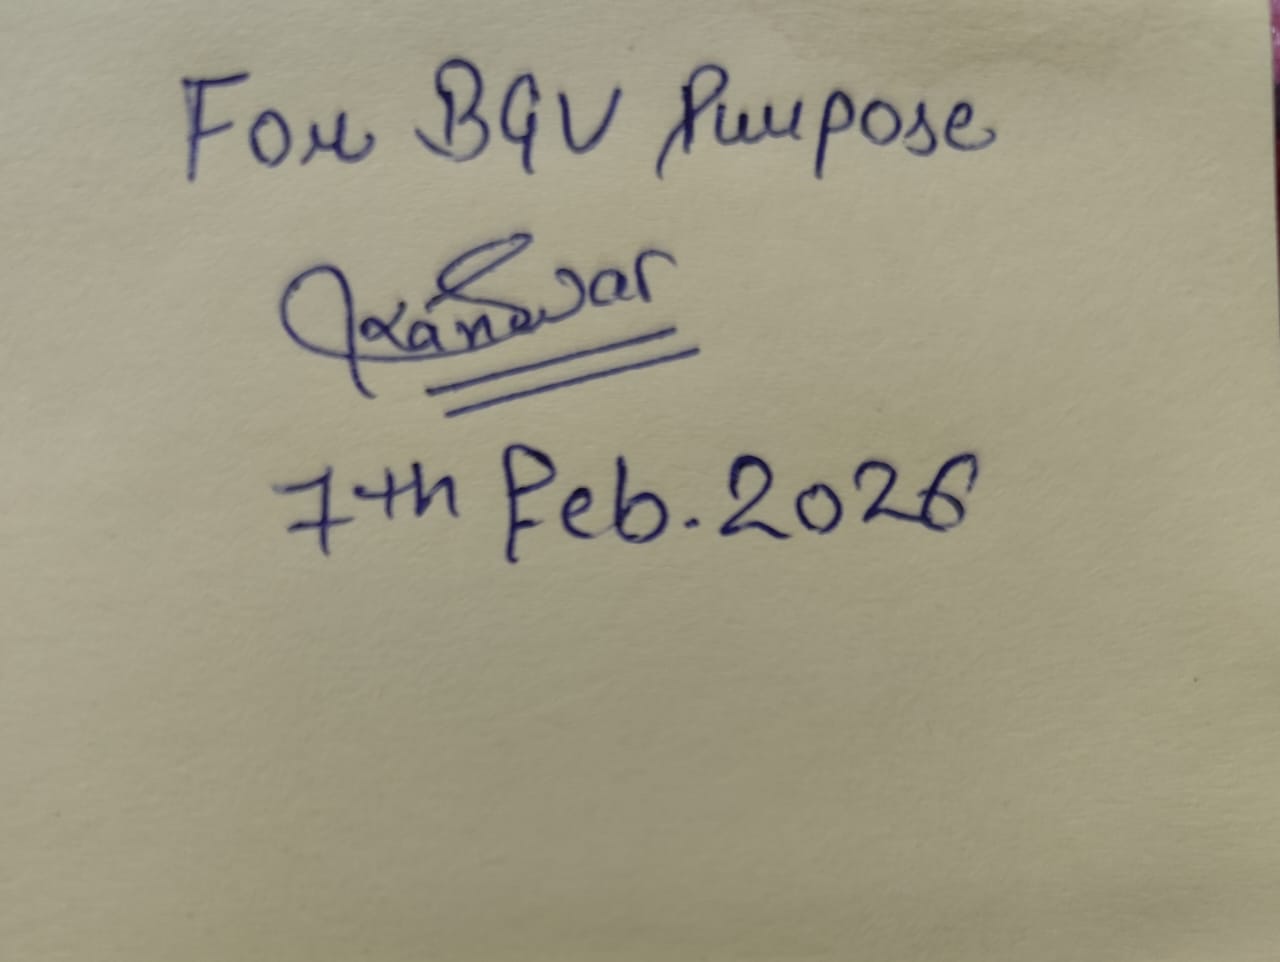 For BGV Purpose
7th Feb. 2026